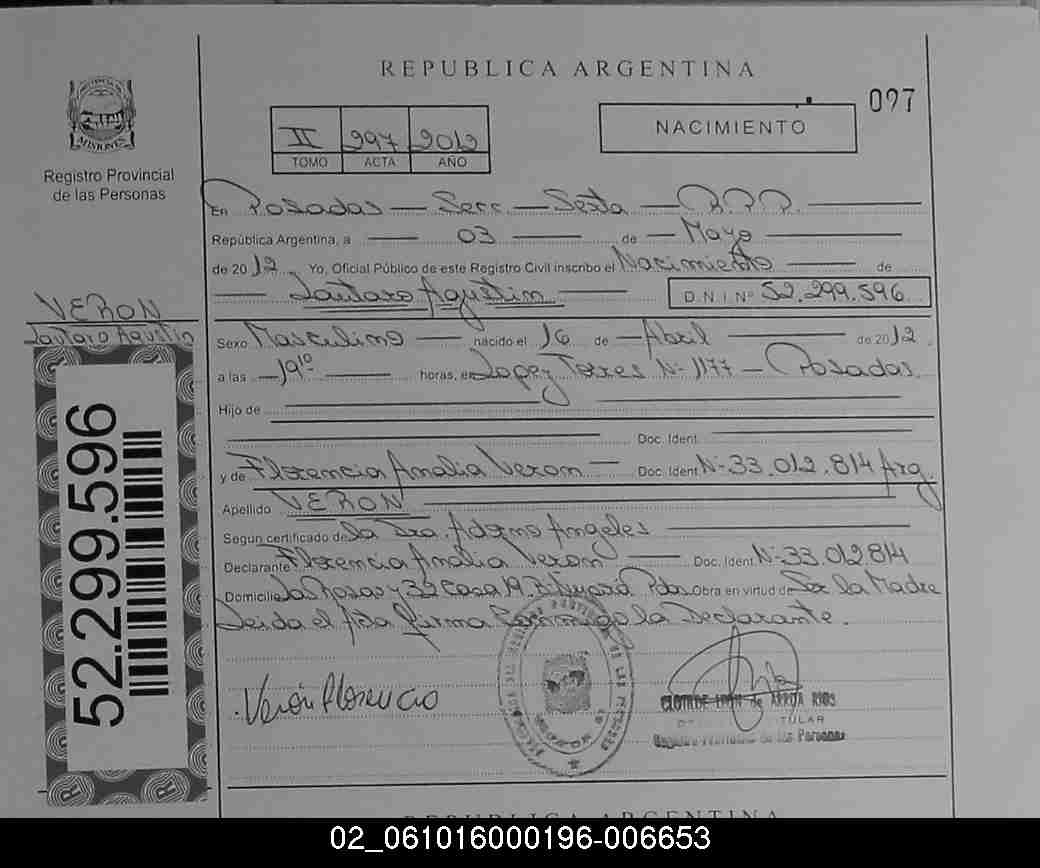 REPUBLICA ARGENTINA
097
II 297 2012
TOMO ACTA AÑO
NACIMIENTO
MISIONES
Registro Provincial
de las Personas
En Posadas — Secc. — Sexta — R.P.P.
República Argentina, a — 03 — de — Mayo —
de 2012. Yo, Oficial Público de este Registro Civil inscribo el Nacimiento — de
— Lautaro Agustin — D.N.I Nº 52.299.596
VERON
Lautaro Agustin
Sexo Masculino — nacido el 16 de — Abril — de 2012
a las — 19¹⁰ — horas, en Lopez Torres Nº 1177 — Posadas.
Hijo de
Doc. Ident.
y de Florencia Analia Veron — Doc. Ident Nº 33.012.814 Arg.
Apellido VERON
Según certificado de la Dra. Adorno Angeles
Declarante Florencia Analia Veron — Doc. Ident Nº 33.012.814
Domicilio La Rosas y 32 Casa 19. Pdas. Obra en virtud de Ser la Madre
Leida el Acta firma Conmigo la Declarante.
52.299.596
Verón Florencia
CLOTILDE de ARRUA RIOS
TULAR
Registro Provincial de las Personas
REPUBLICA ARGENTINA
02_061016000196-006653